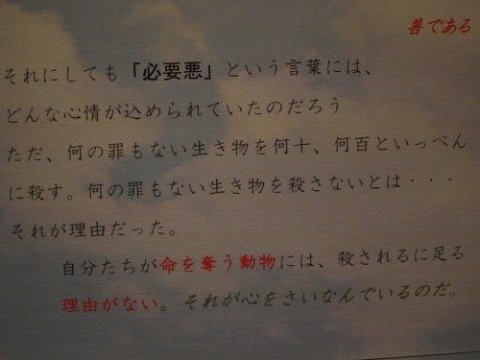 善である
それにしても「必要悪」という言葉には、
どんな心情が込められていたのだろう
ただ、何の罪もない生き物を何十、何百といっぺん
に殺す。何の罪もない生き物を殺さないとは・・・
それが理由だった。
自分たちが命を奪う動物には、殺されるに足る
理由がない。それが心をさいなんでいるのだ。